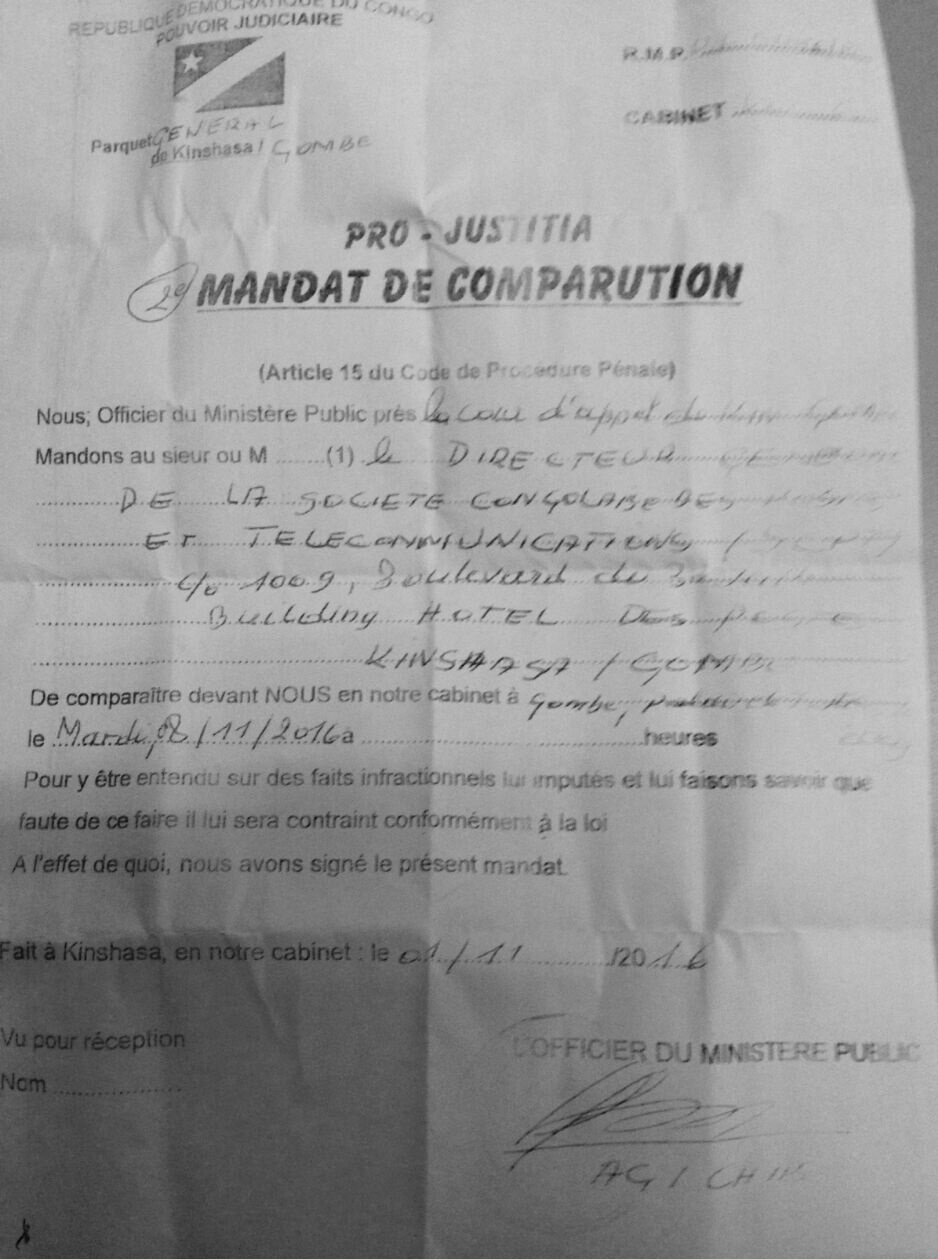 REPUBLIQUE DEMOCRATIQUE DU CONGO
POUVOIR JUDICIAIRE
R.M.P.
CABINET
Parquet GENERAL
de Kinshasa / GOMBE
PRO - JUSTITIA
2e MANDAT DE COMPARUTION
(Article 15 du Code de Procédure Pénale)
Nous; Officier du Ministère Public près la cour d'appel de
Mandons au sieur ou M ........(1) le DIRECTEUR
DE LA SOCIETE CONGOLAISE DES
ET TELECOMMUNICATIONS /
c/o 1009, Boulevard du
Building HOTEL DES
KINSHASA / GOMBE
De comparaître devant NOUS en notre cabinet à Gombe,
le Mardi, 08/11/2016 à ........ heures
Pour y être entendu sur des faits infractionnels lui imputés et lui faisons savoir que
faute de ce faire il lui sera contraint conformément à la loi
A l'effet de quoi, nous avons signé le présent mandat.
Fait à Kinshasa, en notre cabinet : le 01/11 ........ /2016
Vu pour réception
L'OFFICIER DU MINISTERE PUBLIC
Nom ........
AG /